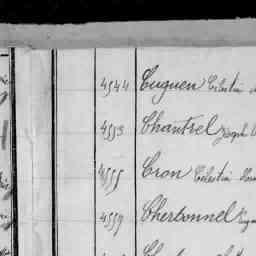 4544 Cuguen Célestin
4553 Chantrel Joseph
4555 Cron Célestin
4559 Cherbonnel